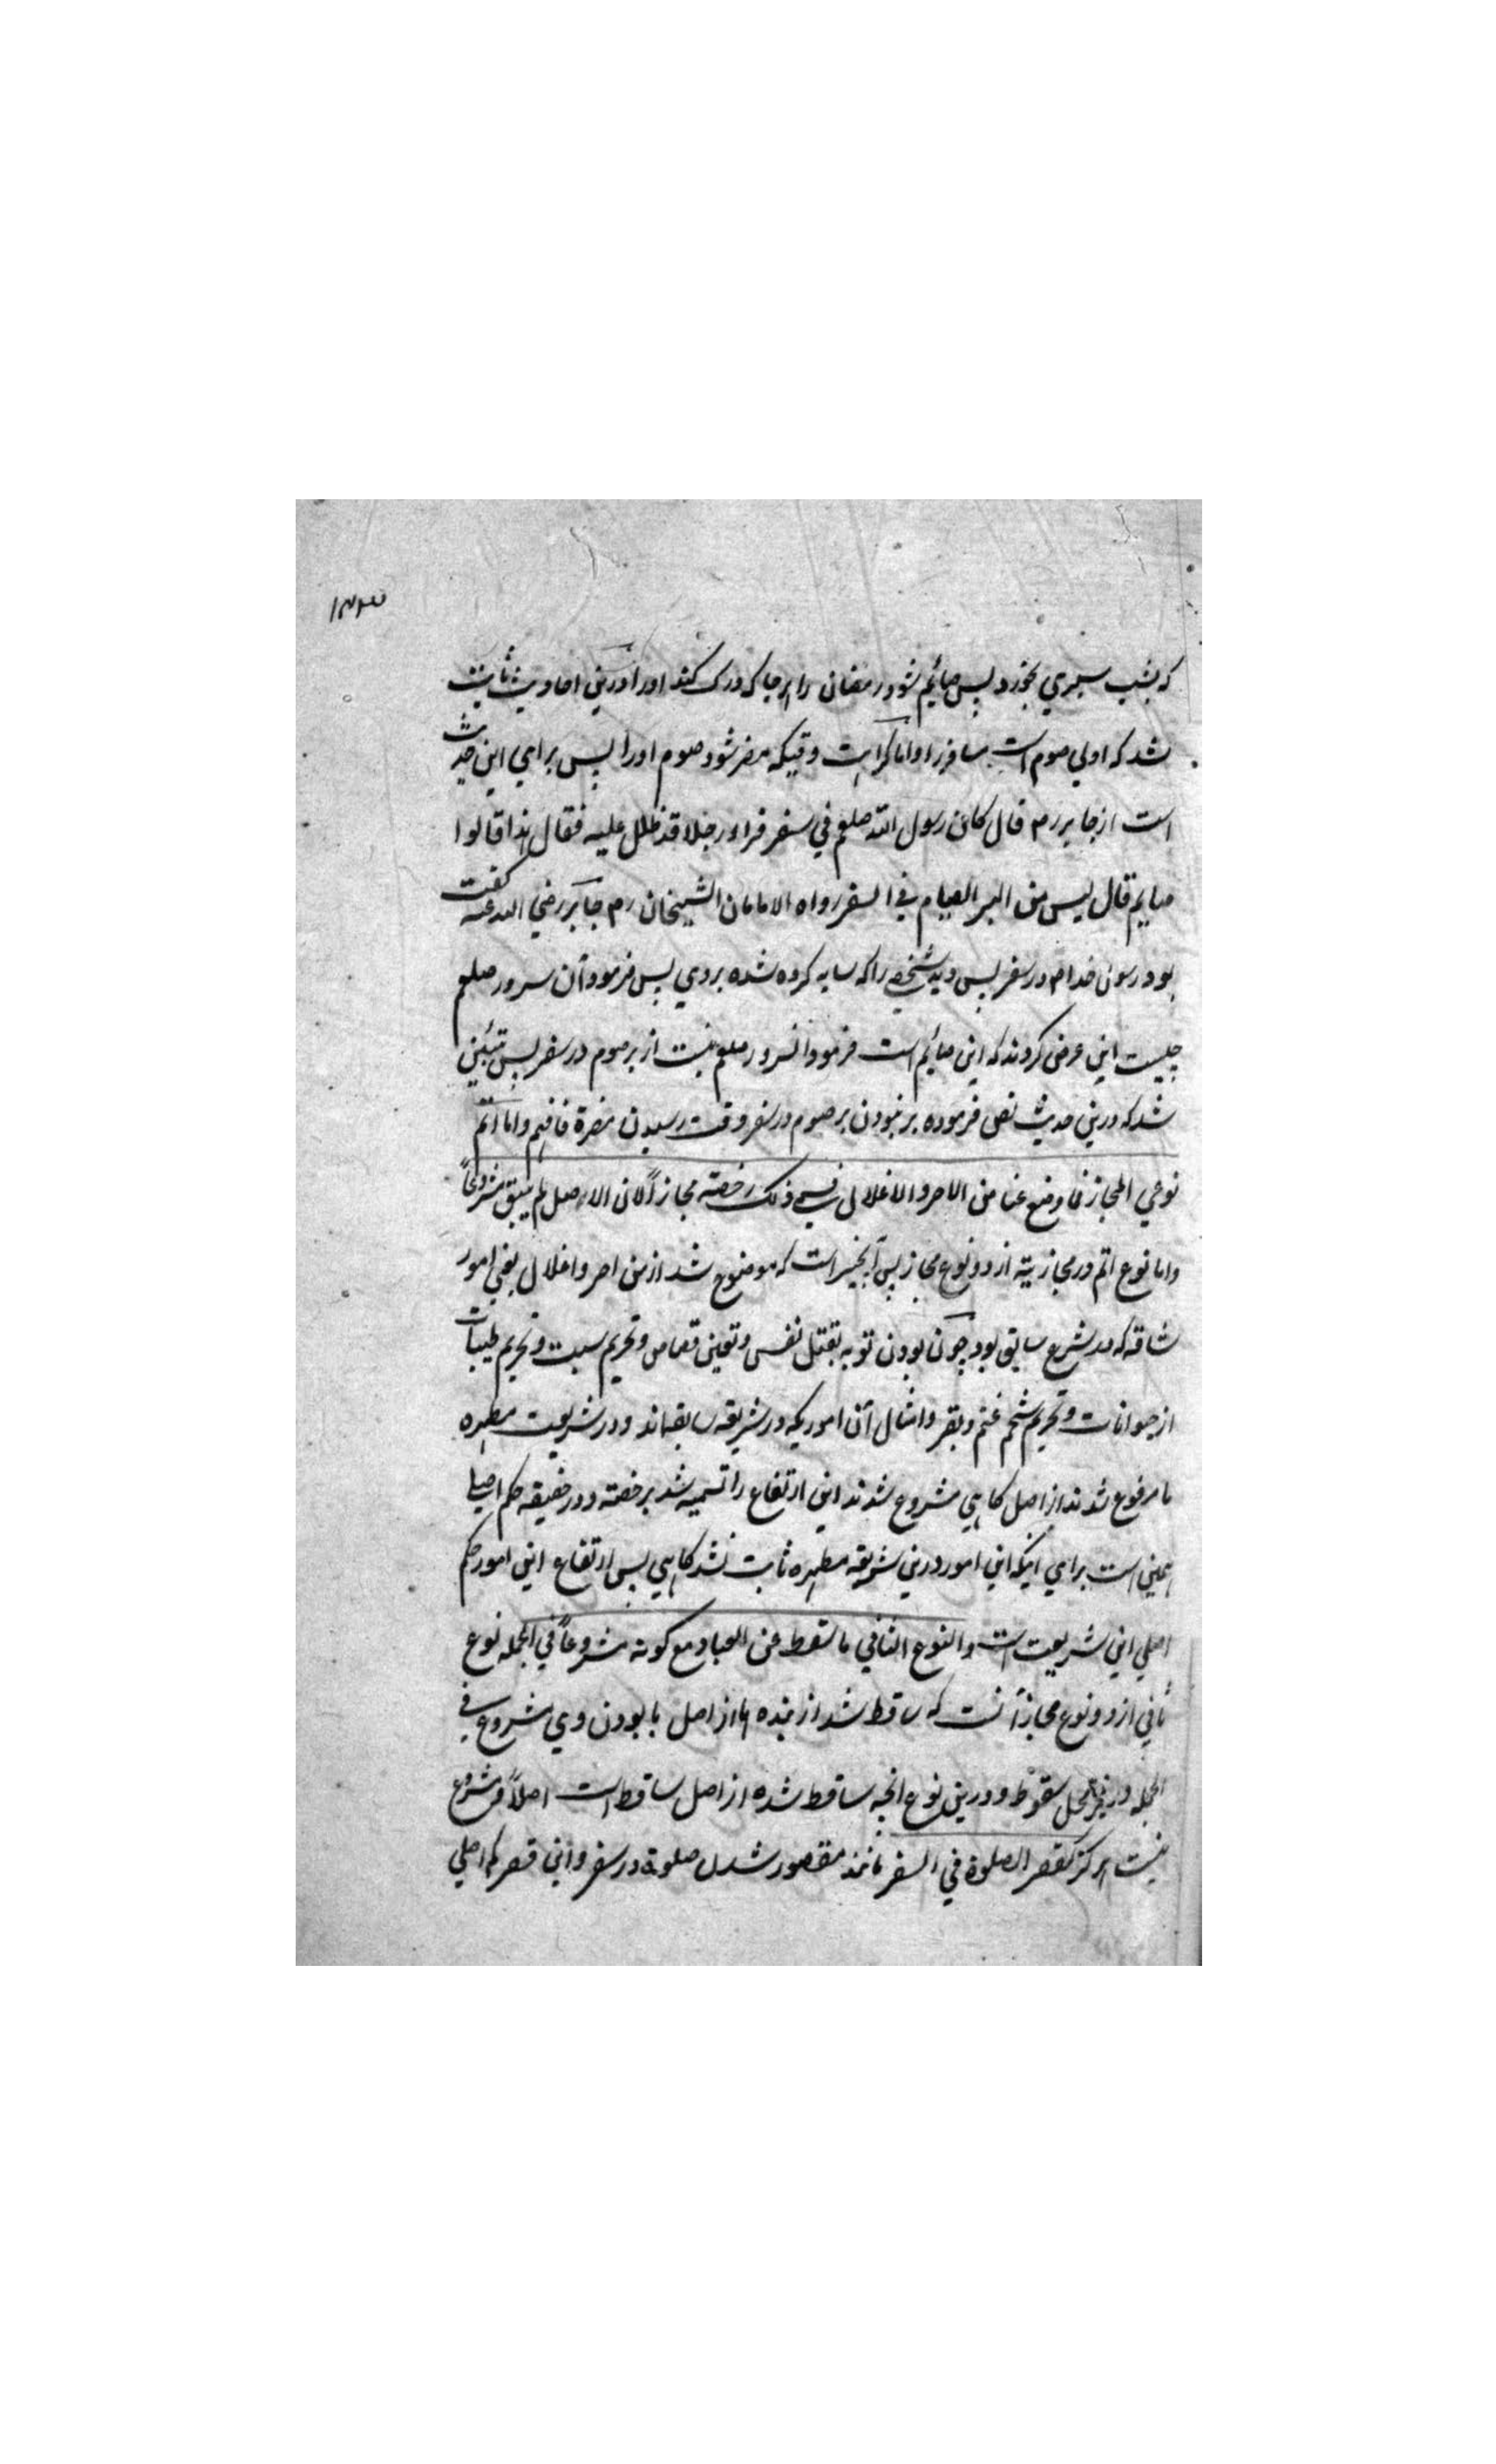 ۱۳۳
که بشب سیري بخورد پس صائم شود رمضان را هرجا که درک کند او را درین احادیث ثابت
شد که اولي صوم است مسافر را و اما کراهت وقتیکه مضر شود صوم او را پس براي این حدیث
است از جابر رم قال کان رسول الله صلعم في سفر فراء رجلا قد ظلل علیه فقال هذا قالوا
صایم قال لیس من البر الصیام في السفر رواه الامامان الشیخان رم جابر رضي الله عنه کفت
بود رسول خدا م در سفر پس دید شخصے را که سایه کرده شده بر وي پس فرمود آن سرور صلعم
چیست این عرض کردند که این صائم است فرمود انسرور صلعم نیست از بر صوم در سفر پس متبین
شد که درین حدیث نص فرموده بر نبودن بر صوم در سفر وقت رسیدن مضرة فافهم و اما اتم
نوعي المجاز فما وضع عنا من الاصر والاغلال فسمی ذلک رخصة مجازاً لان الاصل لم یبق مشروعاً
و اما نوع اتم در مجازیة از دو نوع مجاز پس آنچیز است که موضوع شد از من اصر و اغلال یعني امور
شاقه که در شرع سابق بود چون بودن توبه بقتل نفس و تعین قصاص و تحریم سبت و تحریم طیبات
از حیوانات و تحریم شحم غنم و بقر و امثال آن اموریکه در شریعة سابقه‌اند و در شریعت مطهره
ما مرفوع شدند از اصل کاهي مشروع نشدند این ارتفاع را تسمیه شد برخصة و در حقیقة حکم اصلی
همین است براي اینکه این امور درین شریعة مطهره ثابت نشد کاهي پس ارتفاع این امور حکم
اصلي این شریعت است والنوع الثاني ما سقط عن العباد مع کونه مشروعاً في الجمله نوع
ثاني از دو نوع مجاز آنست که ساقط شد از بنده ها از اصل با بودن وي مشروع في
الجمله در غیر محل سقوط و درین نوع انچه ساقط شده از اصل ساقط است اصلاً مشروع
نیست هرکز کقصر الصلوة في السفر مانند مقصور شدن صلوة در سفر و این قصر حکم اصلي